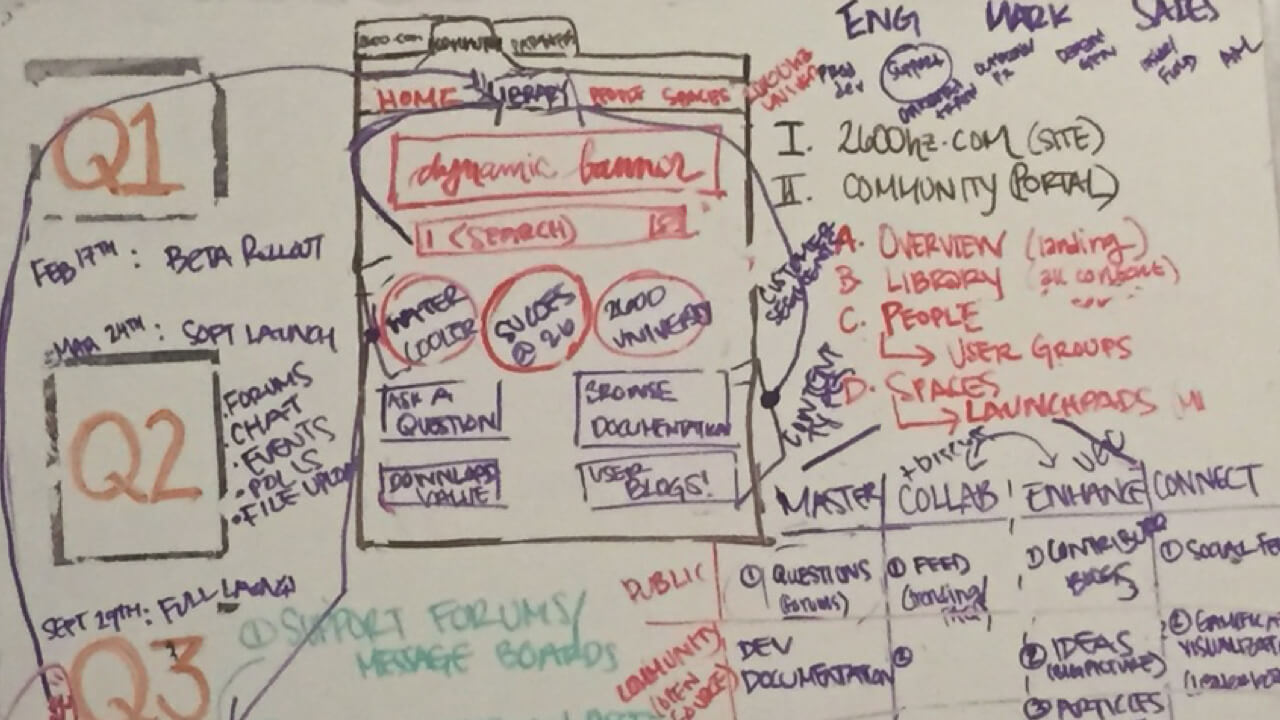 Q1
FEB 17TH: BETA ROLLOUT
MAR 24TH: SOFT LAUNCH
Q2
• FORUMS
• CHAT
• EVENTS
• POLLS
• FILE UPLOAD
SEPT 29TH: FULL LAUNCH
Q3
① SUPPORT FORUMS/
MESSAGE BOARDS
2600.com
HOME LIBRARY PEOPLE SPACES
dynamic banner
(SEARCH)
WATER
COOLER
SUCCES
@ 26
2600
UNIVERSITY
ASK A
QUESTION
BROWSE
DOCUMENTATION
DOWNLOAD
VALUE
USER
BLOGS!
CUSTOMER
SEGMENTS
CONTENT
TYPES
ENG MARK SALES
PROD
DEV
Support
DEMAND
GEN
INSIDE/
FIELD
AM
I. 2600hz.COM (SITE)
II. COMMUNITY (PORTAL)
A. OVERVIEW (landing)
B LIBRARY (all content)
C. PEOPLE
USER GROUPS
D. SPACES
LAUNCHPADS
UGC
MASTER COLLAB ENHANCE CONNECT
PUBLIC
① QUESTIONS
(forums)
① FEED
(trending/
① CONTRIBUTOR
BLOGS
① SOCIAL FE
COMMUNITY
(OPEN
SOURCE)
DEV
DOCUMENTATION
②
② IDEAS
③ ARTICLES
② GAMIFICA
VISUALIZATI
(leaderbo